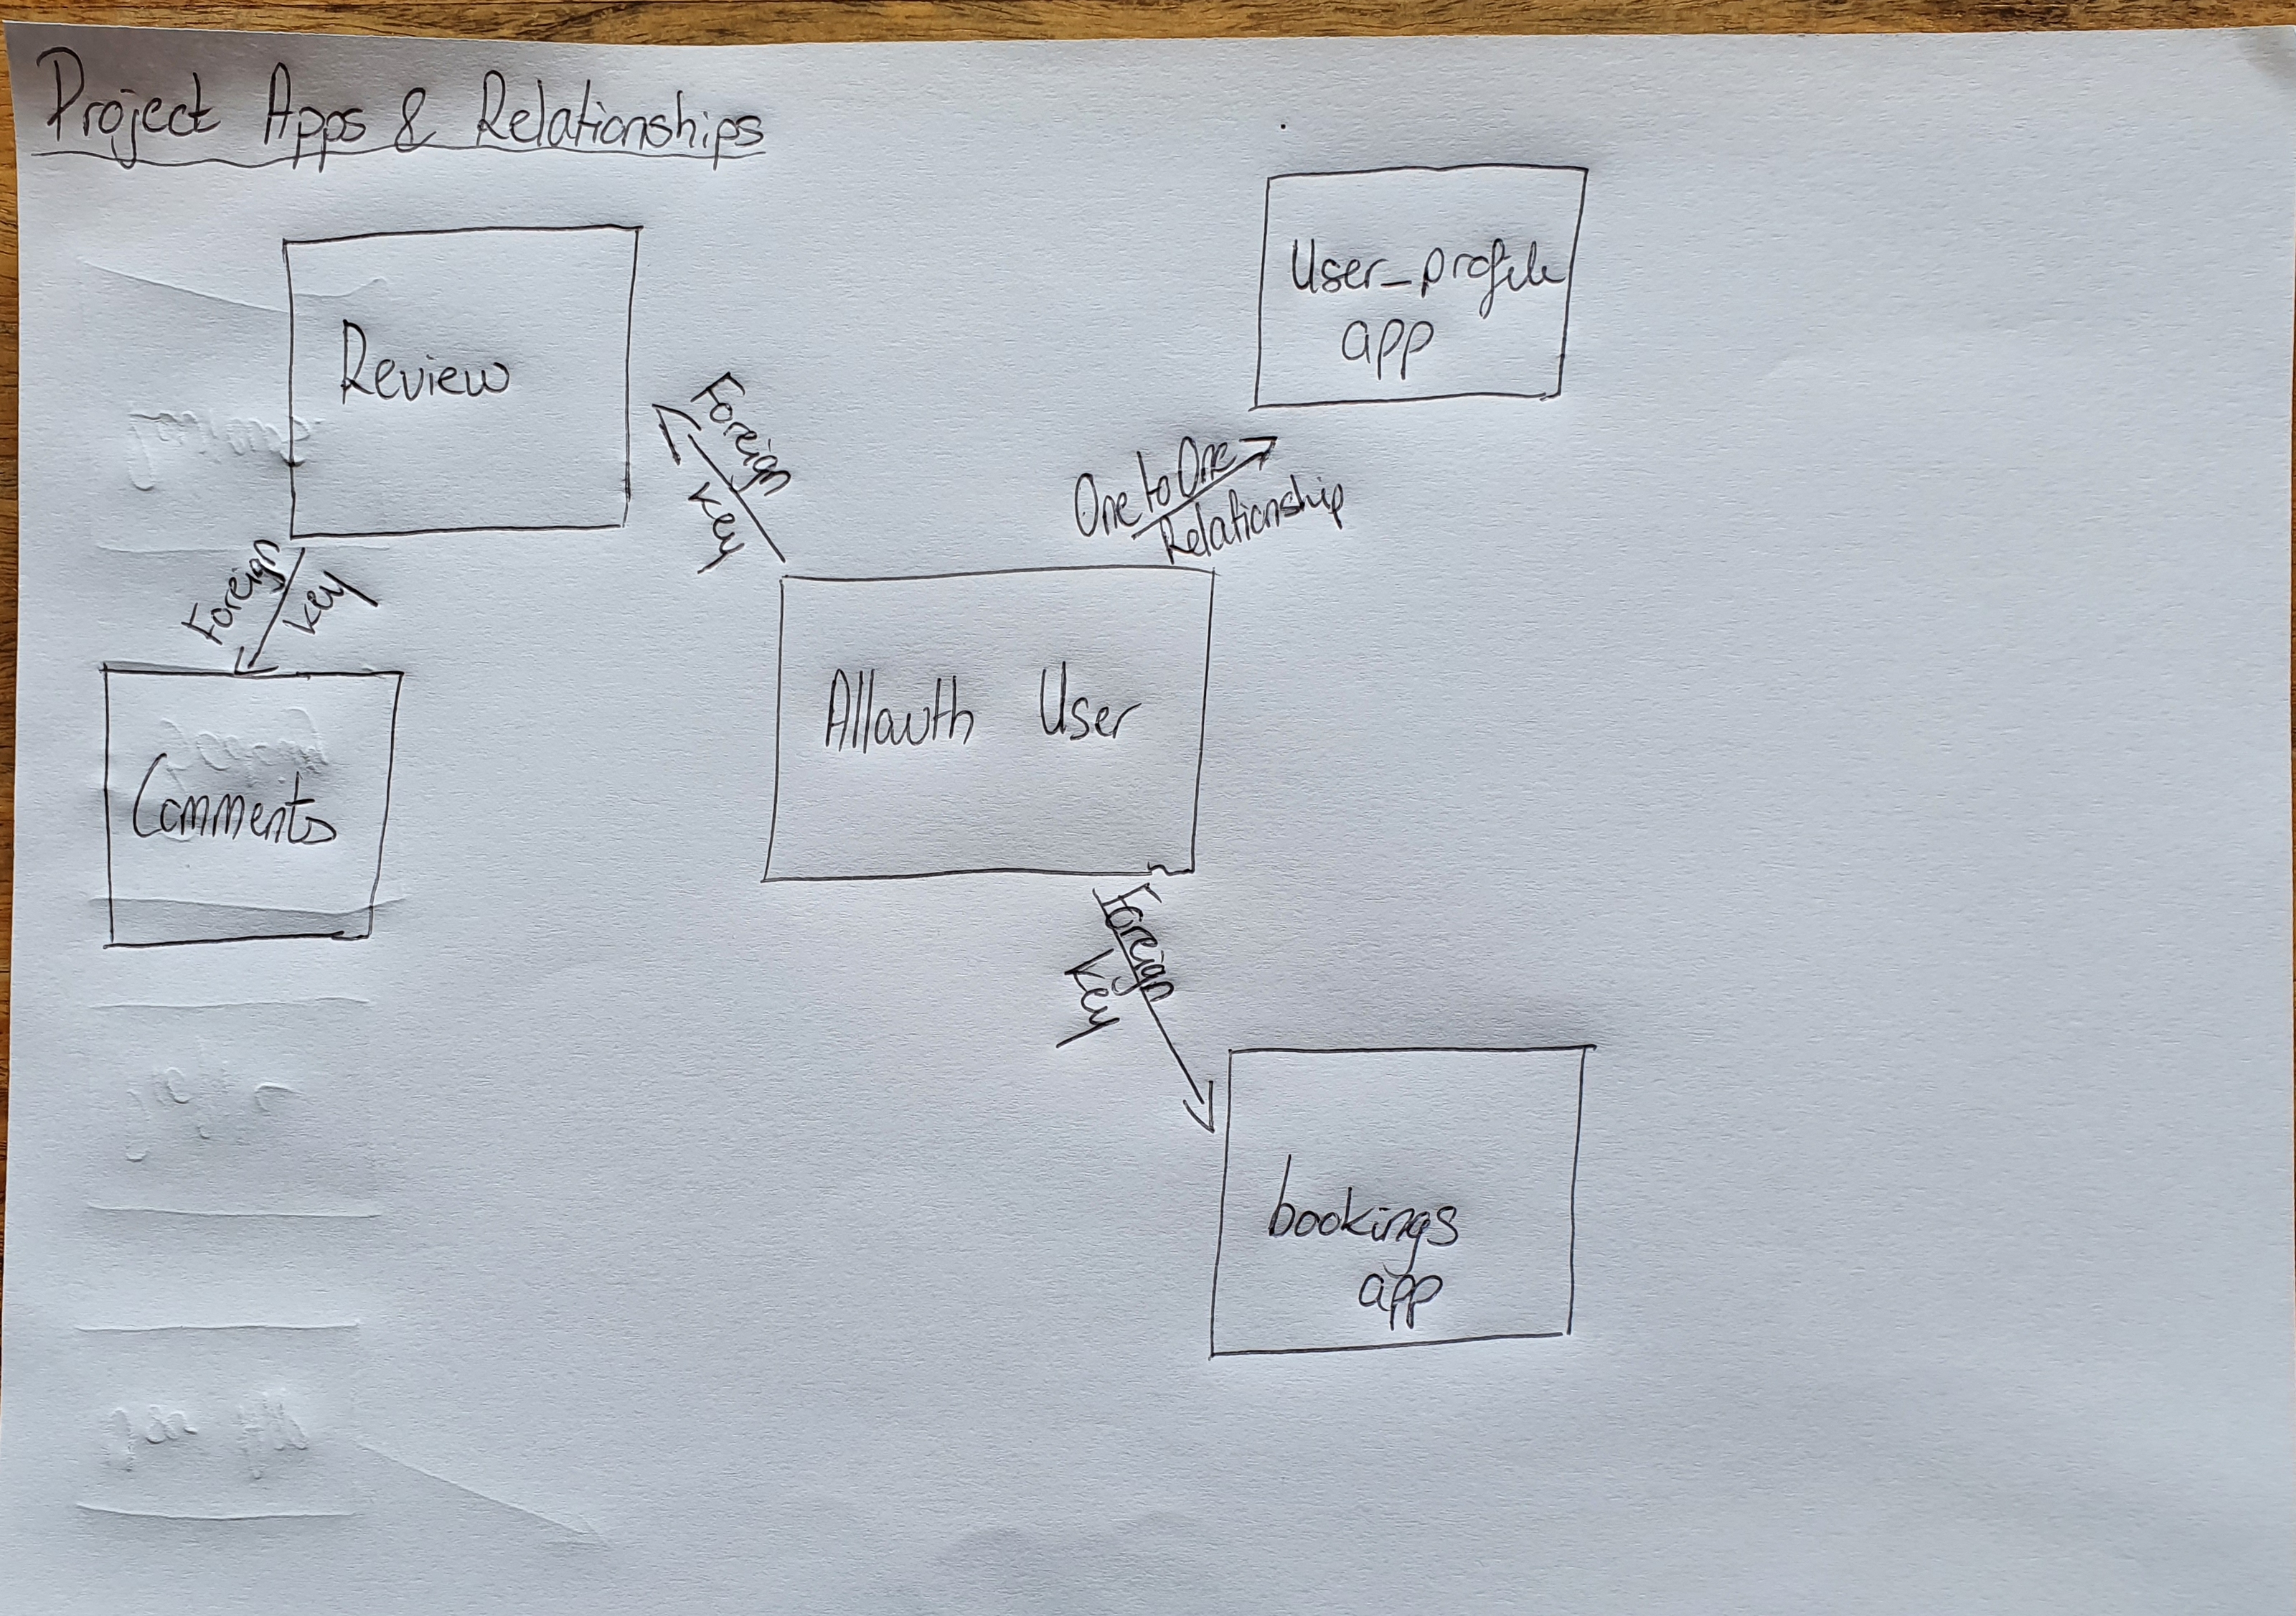 Project Apps & Relationships
Review
User_profile
app
Foreign
Key
One to One
Relationship
Foreign
Key
Allauth User
Comments
Foreign
Key
bookings
app